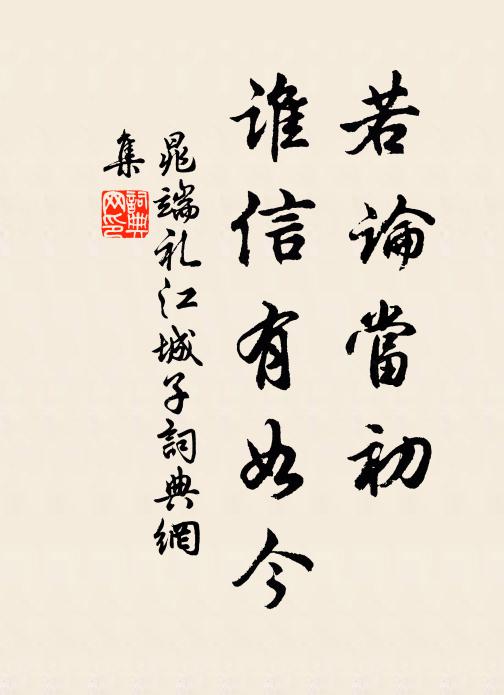 若論當初
誰信有如今
晁端礼江城子詞典網
集
詞典
网印